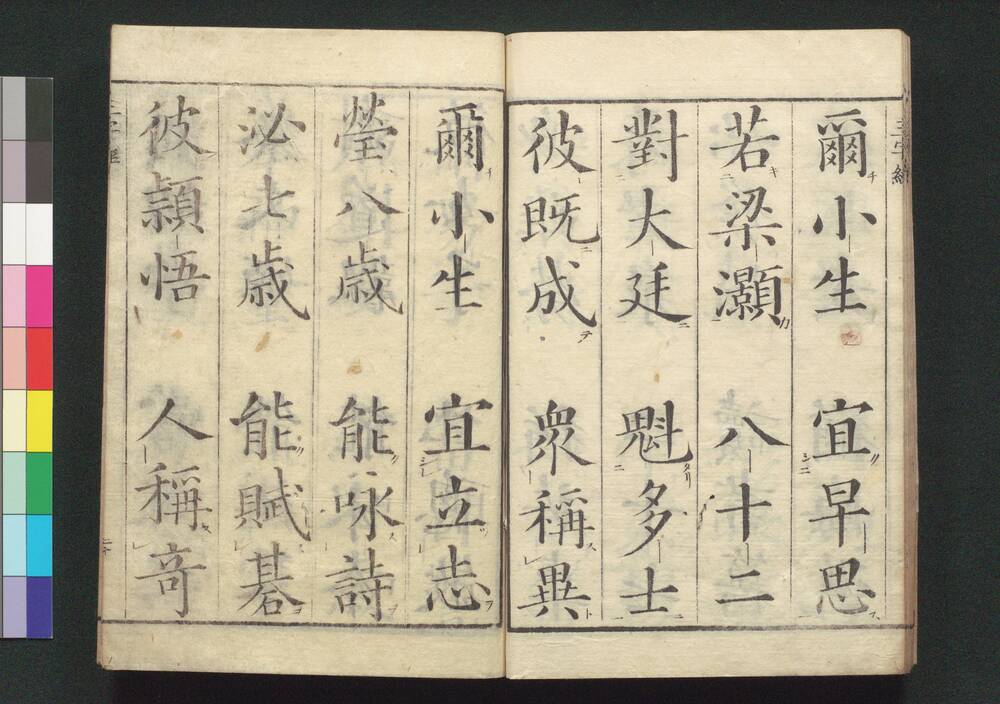 爾小生 宜早思
若梁灝 八十二
對大廷 魁多士
彼既成 衆稱異
爾小生 宜立志
瑩八歳 能咏詩
泌七歳 能賦碁
彼頴悟 人稱奇
三字經